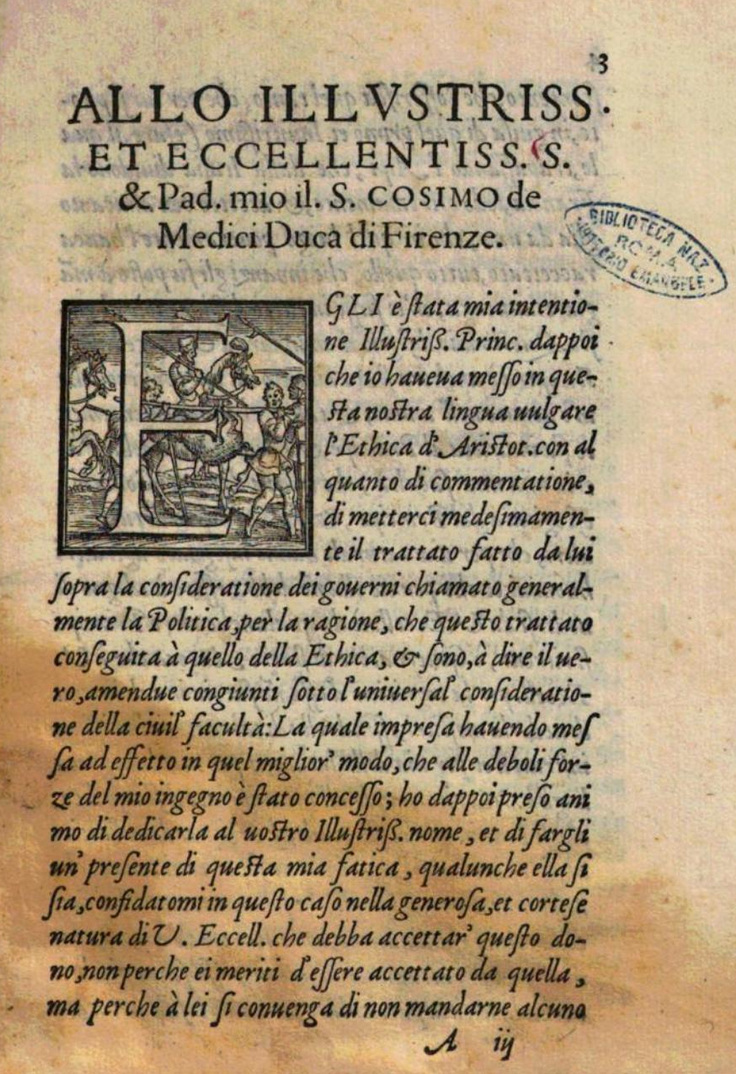 3
ALLO ILLVSTRISS.
ET ECCELLENTISS. S.
& Pad. mio il. S. COSIMO de
Medici Duca di Firenze.
BIBLIOTECA NAZ.
ROMA
VITTORIO EMANUELE
EGLI è ſtata mia intentio-
ne Illuſtriß. Princ. dappoi
che io haueua meſſo in que-
ſta noſtra lingua uulgare
l'Ethica d'Ariſtot. con al
quanto di commentatione,
di metterci medeſimamen-
te il trattato fatto da lui
ſopra la conſideratione dei gouerni chiamato general-
mente la Politica, per la ragione, che queſto trattato
conſeguita à quello della Ethica, & ſono, à dire il ue-
ro, amendue congiunti ſotto l'uniuerſal' conſideratio-
ne della ciuil' facultà: La quale impreſa hauendo meſ
ſa ad effetto in quel miglior' modo, che alle deboli for-
ze del mio ingegno è ſtato conceſſo; ho dappoi preſo ani
mo di dedicarla al uoſtro Illuſtriß. nome, et di fargli
un' preſente di queſta mia fatica, qualunche ella ſi
ſia, confidatomi in queſto caſo nella generoſa, et corteſe
natura di V. Eccell. che debba accettar' queſto do-
no, non perche ei meriti d'eſſere accettato da quella,
ma perche à lei ſi conuenga di non mandarne alcuno
A iij